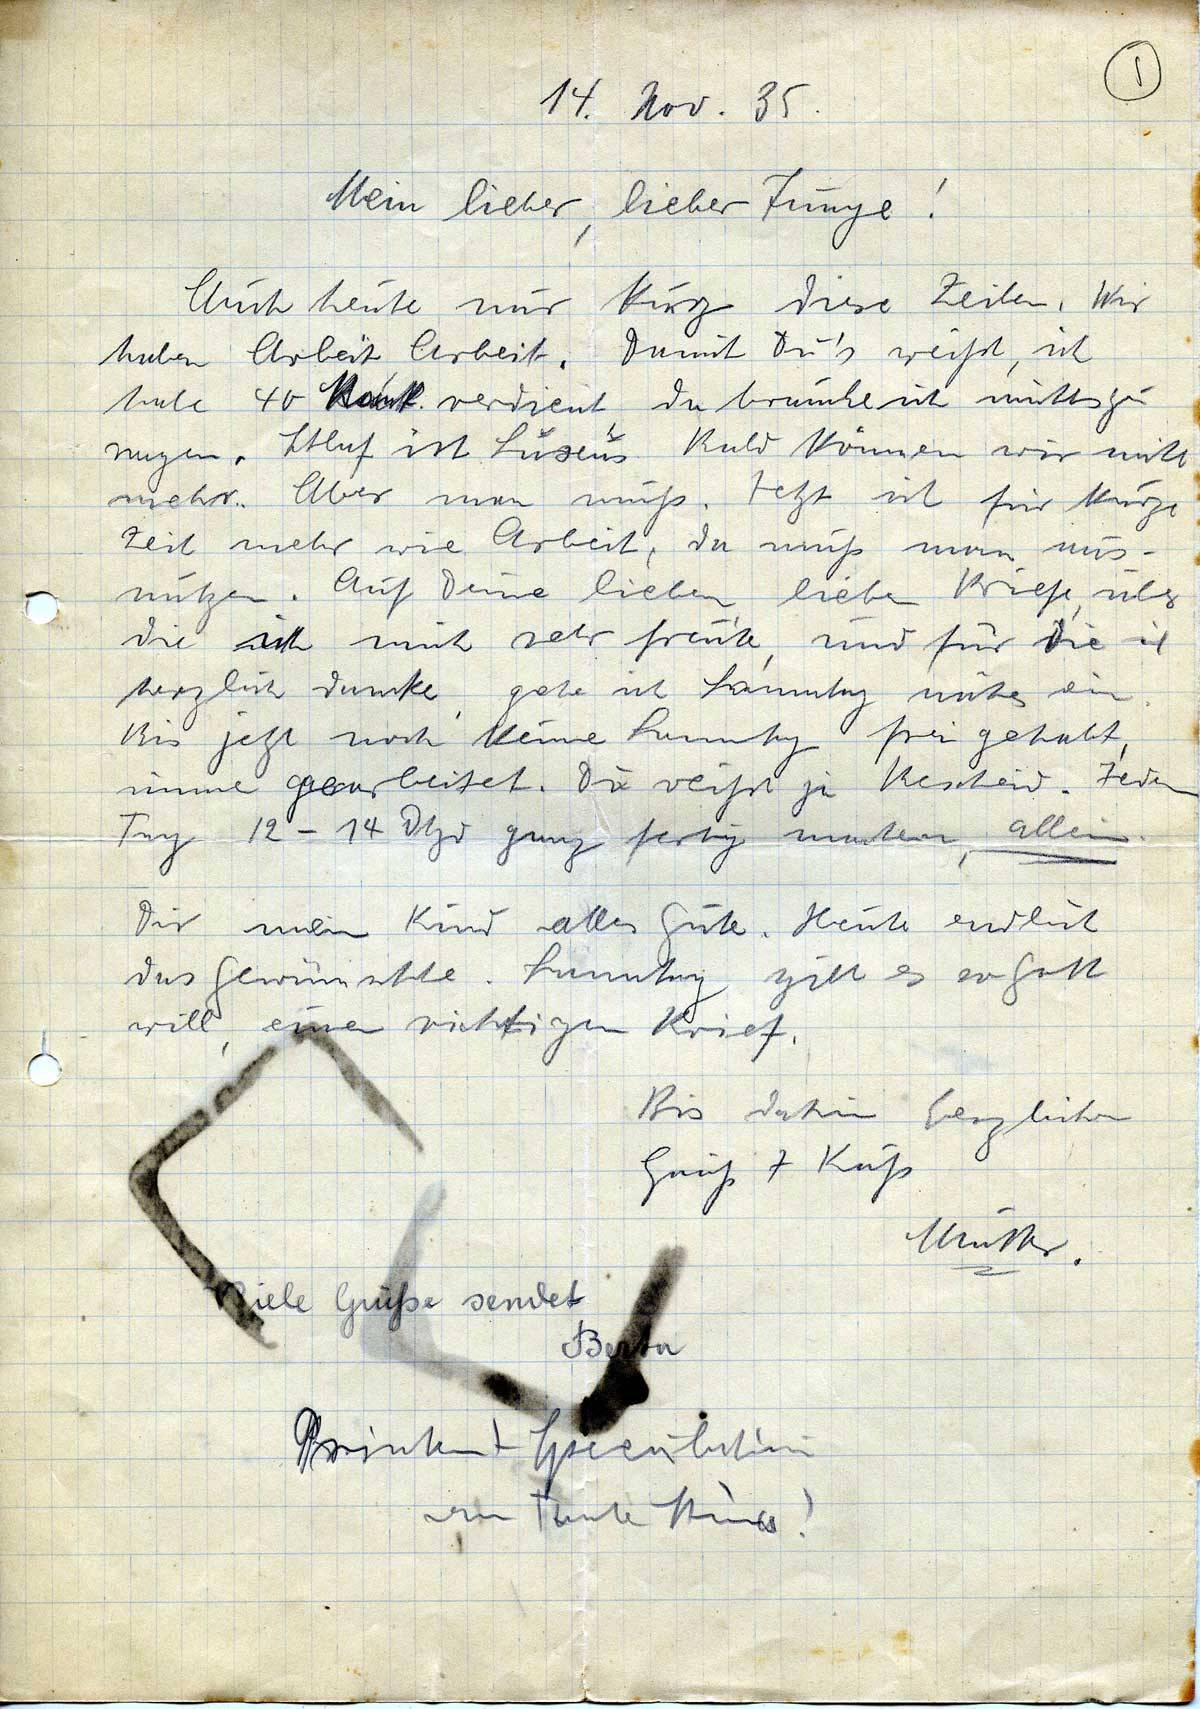 1
14. Nov. 35.
Mein lieber, lieber Junge!
Auch heute nur kurz diese Zeilen. Wir
haben Arbeit Arbeit. Damit Du's weißt, ich
habe 40 Mark verdient, da brauche ich nichts zu
sagen. Schlaf ist Luxus. Bald können wir nicht
mehr. Aber man muß. Jetzt ist für kurze
Zeit mehr wie Arbeit, da muß man aus-
nützen. Auf Deine lieben, lieben Briefe, über
die ich mich sehr freute, und für die ich
herzlich danke, gehe ich Sonntag näher ein.
Bis jetzt noch keine Sonntag frei gehabt,
immer gearbeitet. Du weißt ja Bescheid. Jeden
Tag 12 – 14 Dtzd ganz fertig machen, allein.
Dir mein Kind alles Gute. Heute endlich
das Gewünschte. Sonntag gibt es so Gott
will, einen richtigen Brief.
Bis dahin herzlichen
Gruß + Kuß
Mutter.
Viele Grüße sendet
Berta
Printen + Speculatius
von Tante